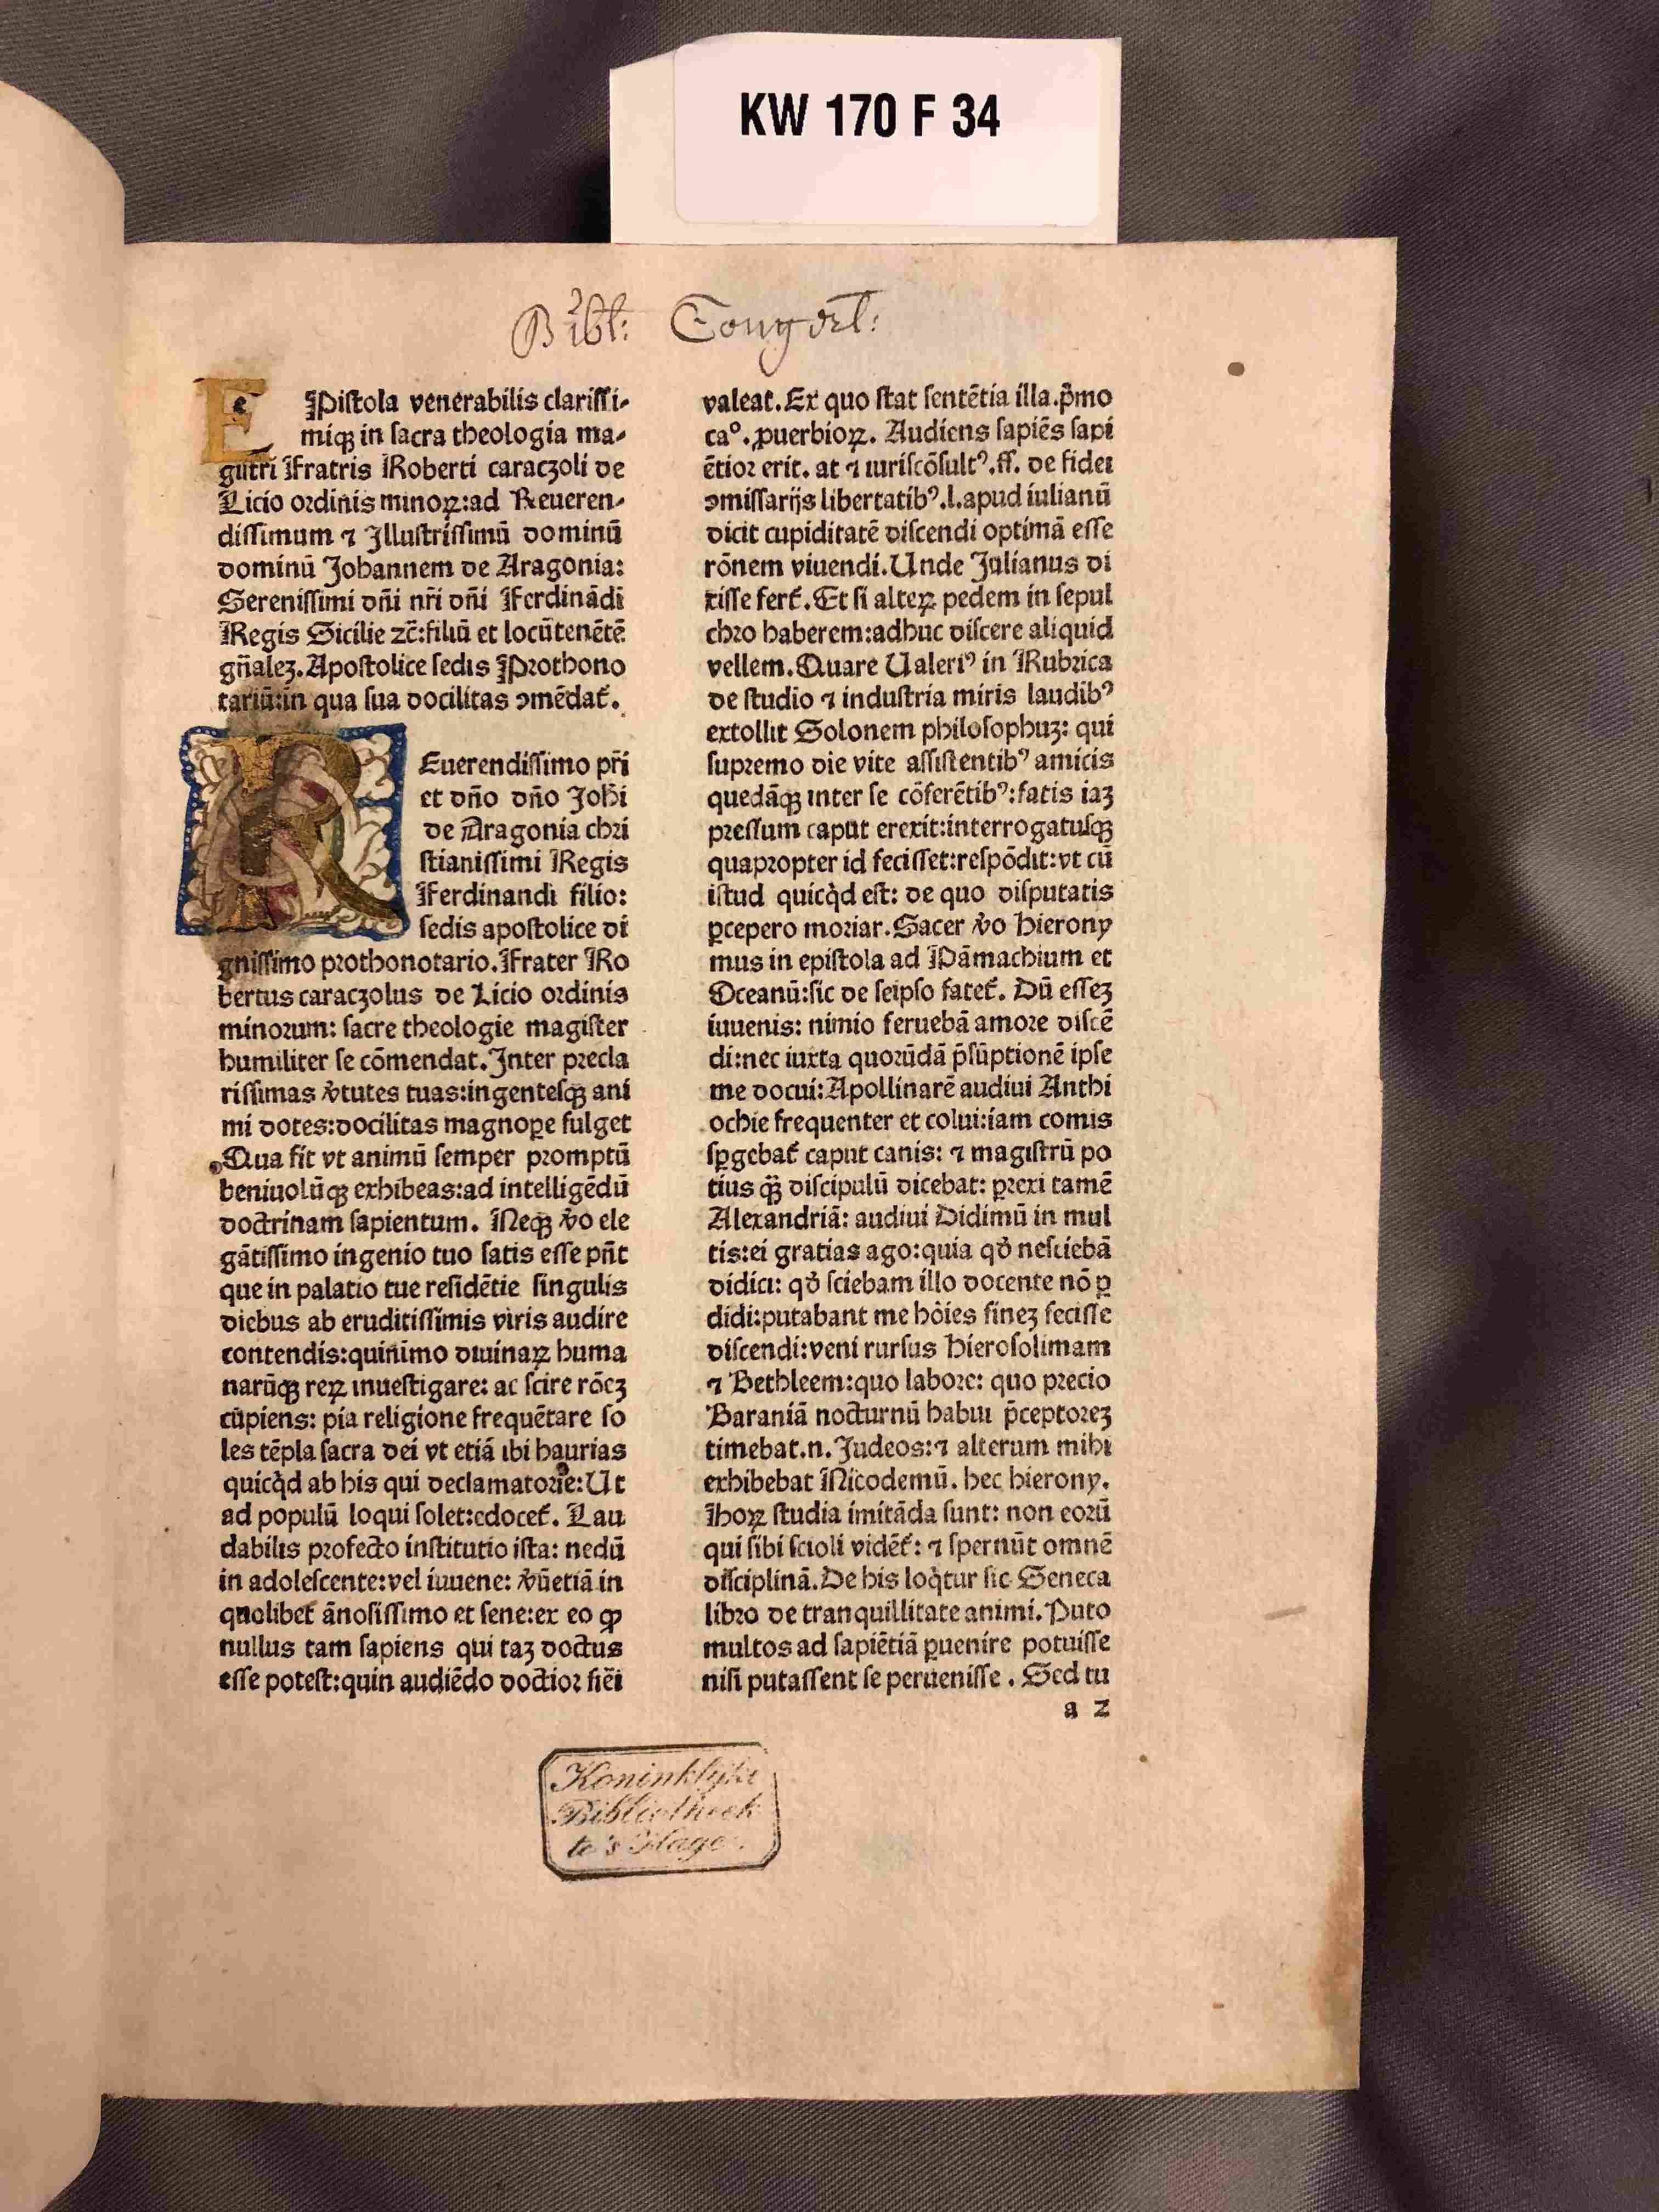 KW 170 F 34
Bibl: Tong
E Piſtola venerabilis clariſſi-
miqꝫ in ſacra theologia ma-
giſtri Fratris Roberti caraczoli de
Licio ordinis minoꝝ:ad Reueren-
diſſimum ⁊ Illuſtriſſimū dominū
dominū Johannem de Aragonia:
Sereniſſimi dn̄i nr̄i dn̄i Ferdinādi
Regis Sicilie zc̄:filiū et locūtenētē
gn̄alez.Apoſtolice ſedis Prothono
tariū:in qua ſua docilitas ɔmēdat᷑.
R Euerendiſſimo pr̄i
et dn̄o dn̄o Joh̄i
de Aragonia chri
ſtianiſſimi Regis
Ferdinandi filio:
ſedis apoſtolice di
gniſſimo prothonotario.Frater Ro
bertus caraczolus de Licio ordinis
minorum: ſacre theologie magiſter
humiliter ſe cōmendat.Inter precla
riſſimas v̓tutes tuas:ingenteſqꝫ ani
mi dotes:docilitas magnoꝑe fulget
Qua fit vt animū ſemper promptū
beniuolūqꝫ exhibeas:ad intelligēdū
doctrinam ſapientum. Neqꝫ v̓o ele
gātiſſimo ingenio tuo ſatis eſſe pn̄t
que in palatio tue reſidētie ſingulis
diebus ab eruditiſſimis viris audire
contendis:quinimo diuinaꝝ huma
narūqꝫ reꝝ inueſtigare: ac ſcire rōeꝫ
cupiens: pia religione frequētare ſo
les tēpla ſacra dei vt etiā ibi haurias
quicq̇d ab his qui declamatorie:Ut
ad populū loqui ſolet:edocet᷑. Lau
dabilis profecto inſtitutio iſta: nedū
in adoleſcente:vel iuuene: v̓ūetiā in
quolibet ānoſiſſimo et ſene:ex eo ꝙ
nullus tam ſapiens qui taꝫ doctus
eſſe poteſt:quin audiēdo doctior fiēi
valeat.Ex quo ſtat ſentētia illa.p̄mo
ca°.ꝓuerbioꝝ. Audiens ſapiēs ſapi
ētior erit. at ⁊ iuriſcōſultꝰ.ff. de fidei
ɔmiſſarijs libertatibꝰ.l.apud iulianū
dicit cupiditatē diſcendi optimā eſſe
rōnem viuendi.Unde Julianus di
xiſſe fert᷑.Et ſi alteꝝ pedem in ſepul
chro haberem:adhuc diſcere aliquid
vellem.Quare Ualeriꝰ in Rubrica
de ſtudio ⁊ induſtria miris laudibꝰ
extollit Solonem philoſophuꝫ: qui
ſupremo die vite aſſiſtentibꝰ amicis
quedāqꝫ inter ſe cōferētibꝰ:fatis iaꝫ
preſſum caput erexit:interrogatuſqꝫ
quapropter id feciſſet:reſpōdit:vt cū
iſtud quicq̇d eſt: de quo diſputatis
ꝑcepero moriar.Sacer v̓o Hierony
mus in epiſtola ad Pāmachium et
Oceanū:ſic de ſeipſo fatet᷑. Dū eſſeꝫ
iuuenis: nimio feruebā amore diſcē
di:nec iuxta quorūdā p̄ſūptionē ipſe
me docui:Apollinarē audiui Anthi
ochie frequenter et colui:iam comis
ſꝑgebat᷑ caput canis: ⁊ magiſtrū po
tius qꝫ̄ diſcipulū dicebat: ꝑrexi tamē
Alexandriā: audiui Didimū in mul
tis:ei gratias ago:quia qd̓ neſciebā
didici: qd̓ ſciebam illo docente nō ꝑ
didi:putabant me hōies fineꝫ feciſſe
diſcendi:veni rurſus Hieroſolimam
⁊ Bethleem:quo labore: quo precio
Baraniā nocturnū habui p̄ceptoreꝫ
timebat.n.Judeos:⁊ alterum mihi
exhibebat Nicodemū. hec hierony.
Hoꝝ ſtudia imitāda ſunt: non eorū
qui ſibi ſcioli vidēt᷑: ⁊ ſpernūt omnē
diſciplinā.De his loq̇tur ſic Seneca
libro de tranquillitate animi.Puto
multos ad ſapiētiā ꝑuenire potuiſſe
niſi putaſſent ſe perueniſſe . Sed tu
a 2
Koninklijke
Bibliotheek
te 's Hage.